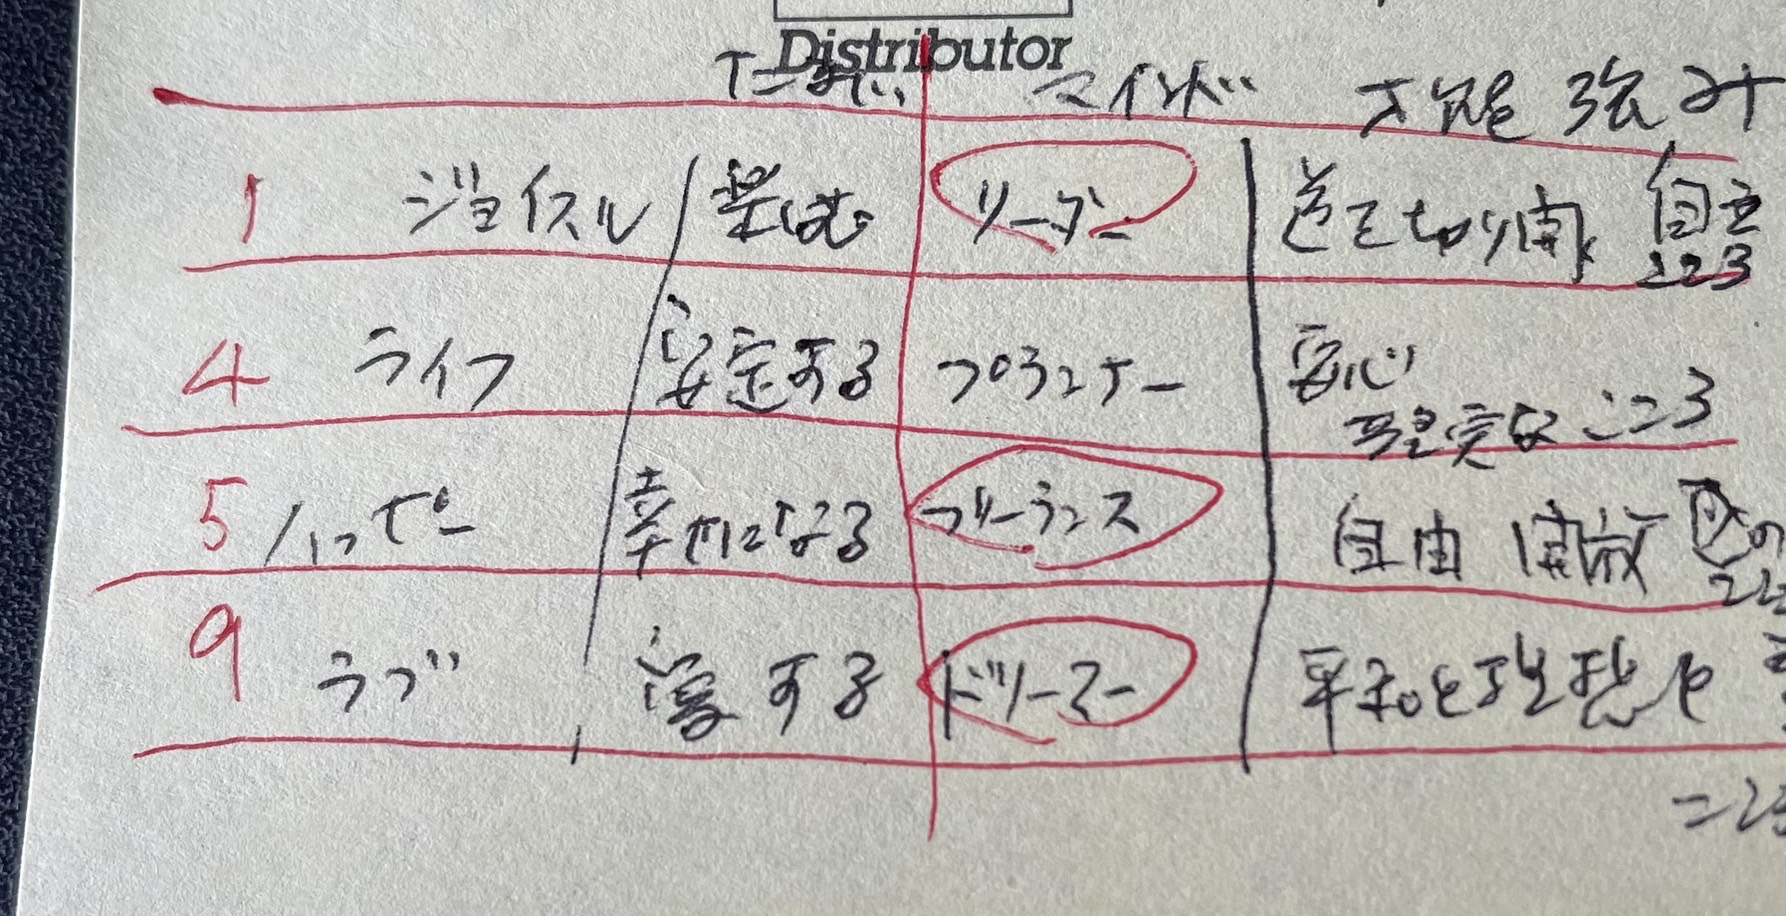 Distributor
マインド 才能 強み
1 ジョイフル 楽しむ リーダー 道を切り開く 自立
こころ
4 ライフ 安定する プランナー 安心
堅実なこころ
5 ハッピー 幸せになる フリーランス 自由 開放
9 ラブ 愛する ドリーマー 平和と理想